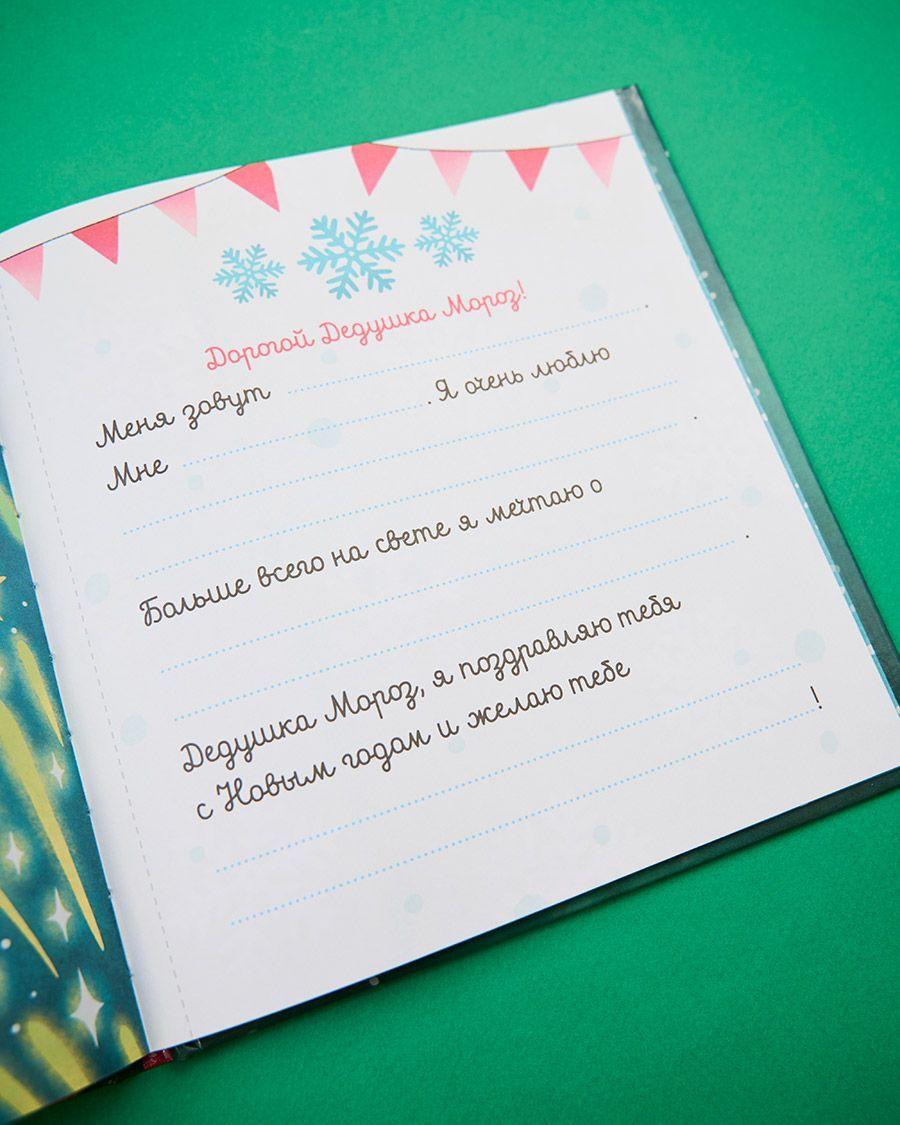 Дорогой Дедушка Мороз!
Меня зовут .
Мне . Я очень люблю
.
Больше всего на свете я мечтаю о
.
Дедушка Мороз, я поздравляю тебя
с Новым годом и желаю тебе
!